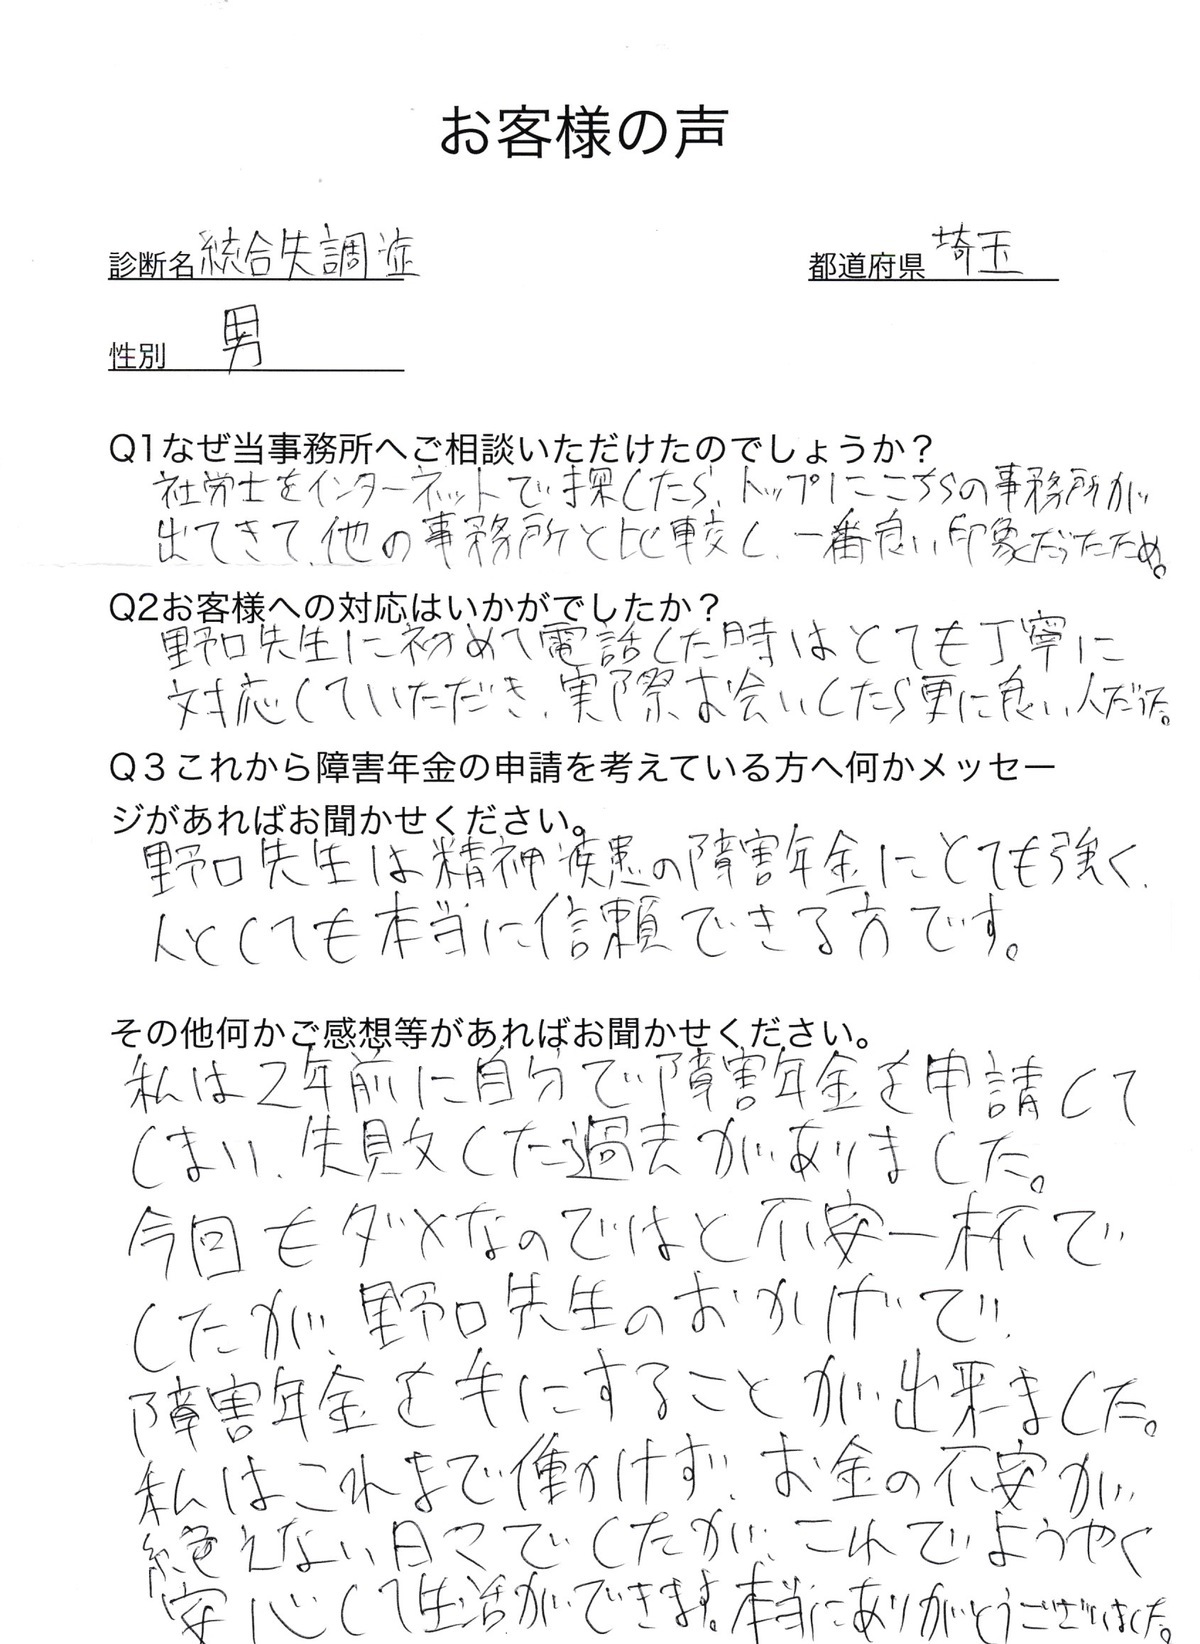 お客様の声
診断名 統合失調症
都道府県 埼玉
性別 男
Q1なぜ当事務所へご相談いただけたのでしょうか？
社労士をインターネットで探したら、トップにこちらの事務所が
出てきて、他の事務所と比較し、一番良い印象だったため。
Q2お客様への対応はいかがでしたか？
野口先生に初めて電話した時はとても丁寧に
対応していただき、実際お会いしたら更に良い人だった。
Q３これから障害年金の申請を考えている方へ何かメッセー
ジがあればお聞かせください。
野口先生は精神疾患の障害年金にとても強く、
人としても本当に信頼できる方です。
その他何かご感想等があればお聞かせください。
私は2年前に自分で障害年金を申請して
しまい、失敗した過去がありました。
今回もダメなのではと不安一杯で
したが、野口先生のおかげで、
障害年金を手にすることが出来ました。
私はこれまで働けず、お金の不安が
絶えない日々でしたが、これでようやく
安心して生活ができます。本当にありがとうございました。